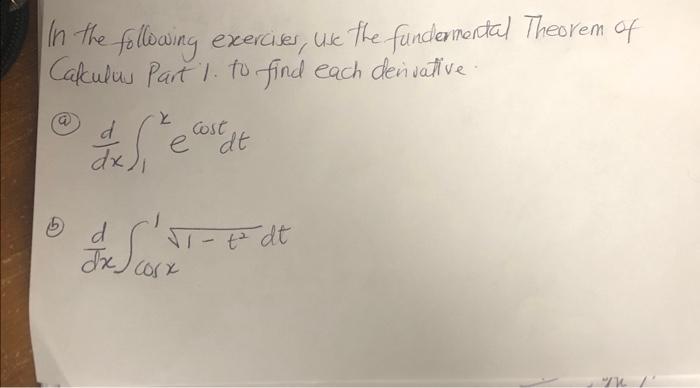 In the following exercises, use the fundermental Theorem of
Calculus Part 1. to find each derivative.
ⓐ d/dx ∫₁ˣ e^cost dt
ⓑ d/dx ∫_cosx^1 √1-t² dt